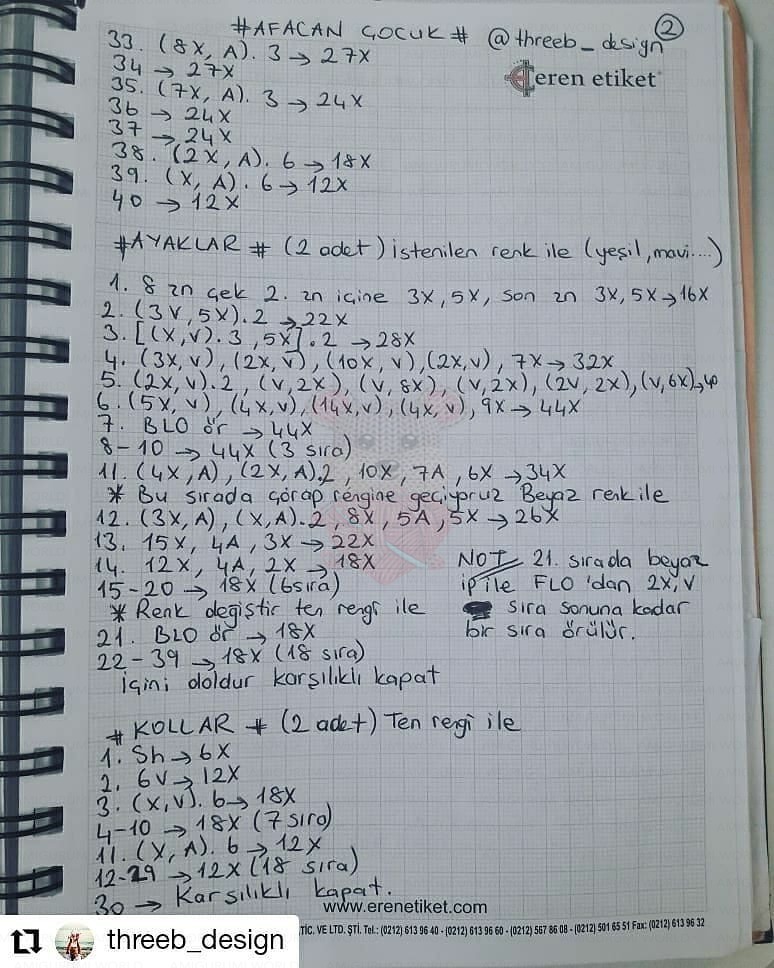 #AFACAN ÇOCUK# @threeb_design 2
eren etiket
33. (8X, A). 3 → 27X
34 → 27X
35. (7X, A). 3 → 24X
36 → 24X
37 → 24X
38. (2X, A). 6 → 18X
39. (X, A). 6 → 12X
40 → 12X
#AYAKLAR# (2 adet) istenilen renk ile (yeşil, mavi....)
1. 8 zn çek 2. zn içine 3X, 5X, son zn 3X, 5X → 16X
2. (3V, 5X).2 → 22X
3. [(X,V).3, 5X].2 → 28X
4. (3X, V), (2X, V), (10X, V), (2X,V), 7X → 32X
5. (2X, V).2, (V, 2X), (V, 8X), (V, 2X), (2V, 2X), (V, 6X) → 40
6. (5X, V), (4X,V), (14X,V), (4X, V), 9X → 44X
7. BLO ör → 44X
8-10 → 44X (3 sıra)
11. (4X, A), (2X, A).2, 10X, 7A, 6X → 34X
* Bu sırada çorap rengine geçiyoruz Beyaz renk ile
12. (3X, A), (X, A).2, 8X, 5A, 5X → 26X
13. 15X, 4A, 3X → 22X
14. 12X, 4A, 2X → 18X
15-20 → 18X (6sıra)
* Renk değiştir ten rengi ile
21. BLO ör → 18X
22-39 → 18X (18 sıra)
içini doldur karşılıklı kapat
NOT 21. sırada beyaz
ip ile FLO 'dan 2X, V
sıra sonuna kadar
bir sıra örülür.
#KOLLAR# (2 adet) Ten rengi ile
1. Sh → 6X
2. 6V → 12X
3. (X,V). 6 → 18X
4-10 → 18X (7 sıra)
11. (X, A). 6 → 12X
12-29 → 12X (18 sıra)
30 → Karşılıklı kapat.
www.erenetiket.com
TİC. VE LTD. ŞTİ. Tel.: (0212) 613 96 40 - (0212) 613 96 60 - (0212) 567 86 08 - (0212) 501 65 51 Fax: (0212) 613 96 32
threeb_design